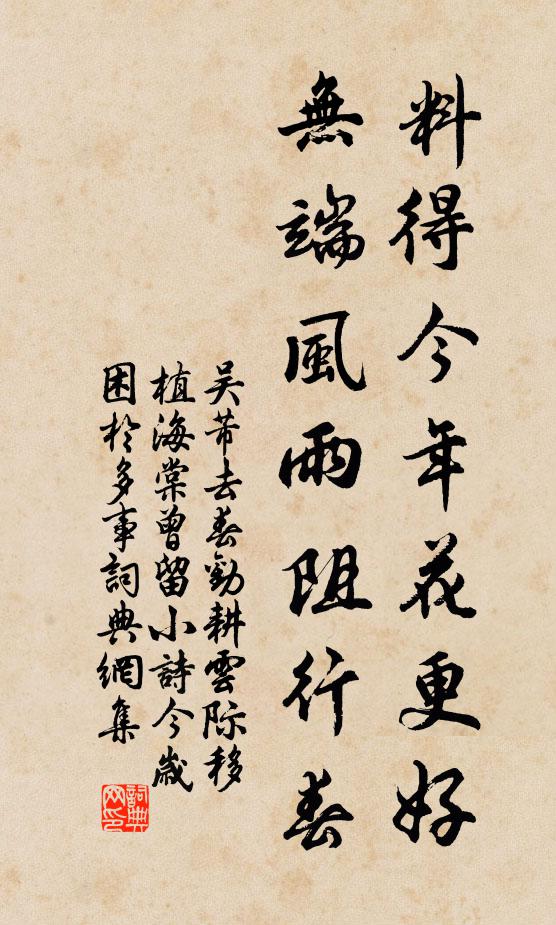 料得今年花更好
無端風雨阻行春
吳芾去春勸耕雲際移
植海棠曾留小詩今歲
困於多事詞典網集
詞典網印